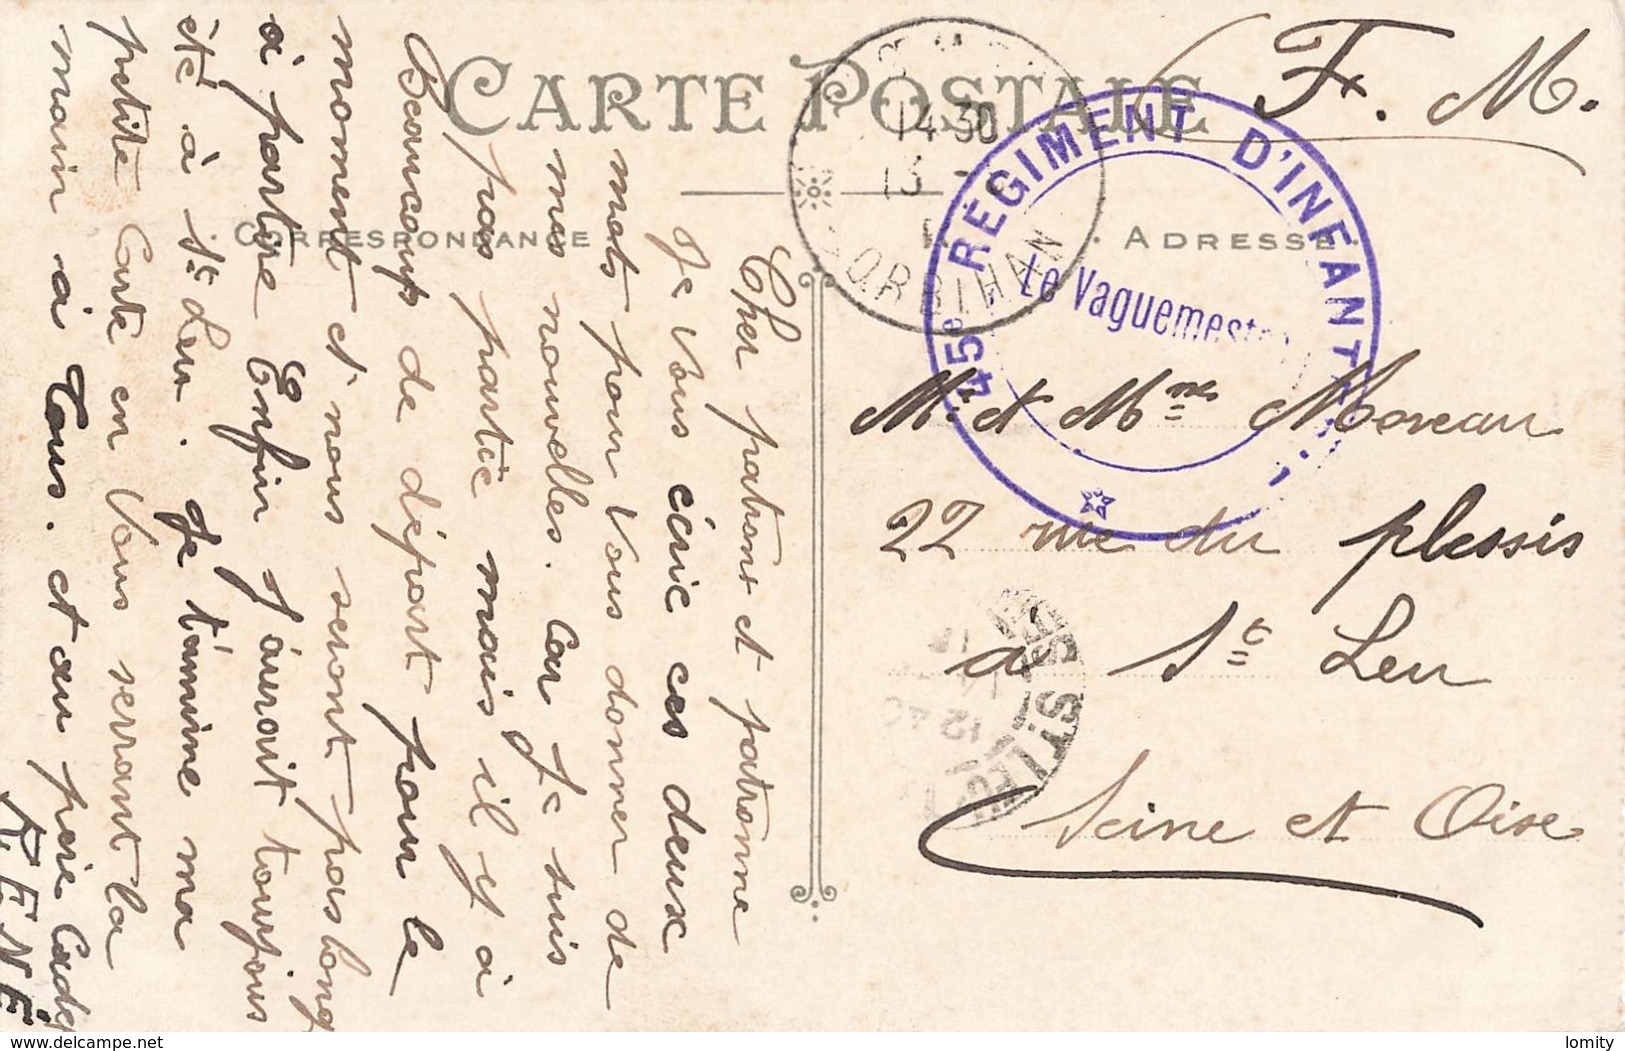 CARTE POSTALE
F. M.
CORRESPONDANCE
ADRESSE
14 30
13
ORBIHAN
45e RÉGIMENT D'INFANT
Le Vaguemest
Cher patrons et patronne
Je Vous écric ces deux
mots pour Vous donner de
mes nouvelles. car Je suis
pas partie mais il y à
Beaucoup de départ pour le
moment et nous seront pas long
à partire Enfin J'auroit toujours
été à St Leu. Je términe ma
petite Carte en Vous serrant la
main à Tous. et au père
RENÉ
M. et Mme Moreau
22 rue du plessis
à St Leu
Seine et Oise
12 40
delcampe.net
lomity